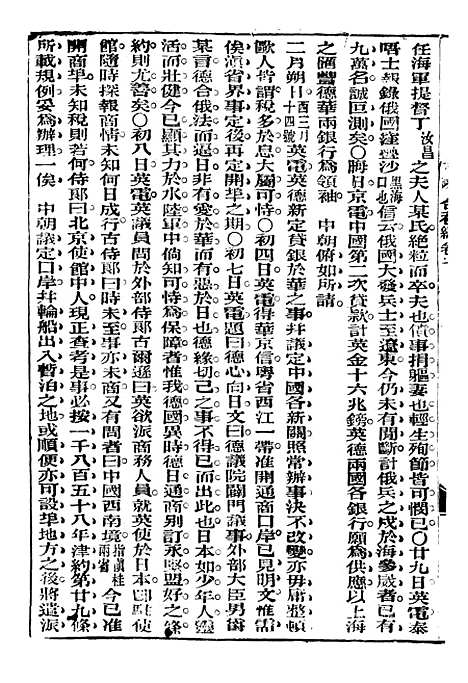 任海軍提督丁汝昌之夫人某氏絶粒而卒夫也僨事捐軀妻也輕生殉節皆可憫已〇廿九日英電泰
晤士報錄俄國窪迭沙黑海口也信云俄國大發兵士至遼東今仍未有間斷計俄兵之戍於海參歲者已有
九萬名誠巨測矣〇胸日京電中國第二次貸款計英金十六兆鎊英德兩國各銀行願爲供應以上海
之匯豐德華兩銀行爲領袖 中朝俯如所請
二月朔日西三月十四號英電英德新定貸銀於華之事幷議定中國各新關照常辦事決不改變亦毋庸整頓
歐人皆謂税多於息大屬可恃〇初四日英電得華京信粤省西江一帶准開通商口岸已見明文惟需
俟滇省界事定後再定開埠之期〇初七日英電題曰德心向日文曰德議院闢門議事外部大臣男爵
某言德合俄法而逼日非有愛於華而有憑於日也德緣切己之事不得已而出此也日本如少年人靈
活而壯健今已顯其力於水陸軍中倘知可恃爲保障者惟我德國異時德日通商别訂永堅盟好之條
約則尤善矣〇初八日英電英議員問於外部侍郎古爾遜曰英欲派商務人員就英使於日本駐使
館隨時探報商情未知何日成行古侍郎曰時未至事亦未商又有問者曰中國西南境指滇桂兩省今已准
開商埠未知税則若何侍郎曰北京使館中人現正查考是事必按一千八百五十八年津約第廿九條
所載規例妥爲辦理一俟 中朝議定口岸幷輪船出入暫泊之地或順便亦可設埠地方之後將遣派